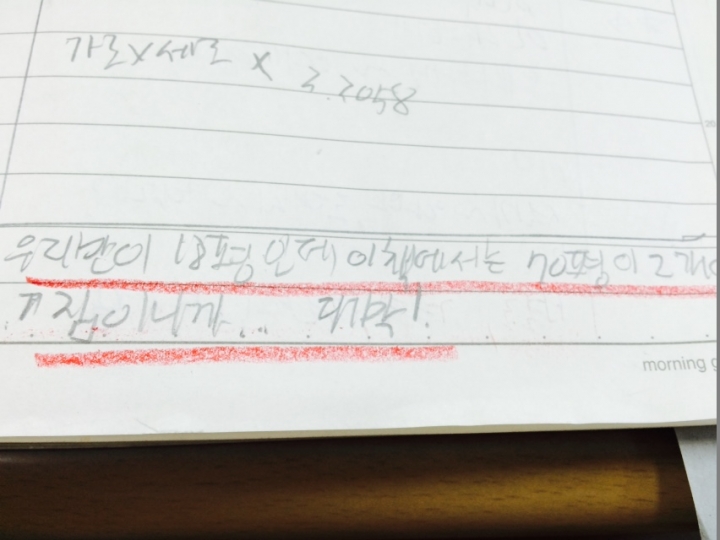 가로×세로 × 3.2058
20
우리반이 18평인데 이책에서는 70평이 2개
점이니까... 대박!
morning g